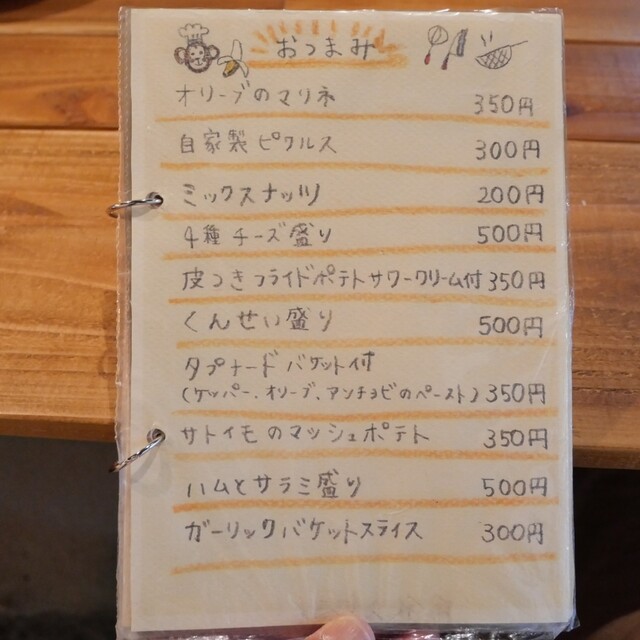 おつまみ
オリーブのマリネ 350円
自家製ピクルス 300円
ミックスナッツ 200円
4種チーズ盛り 500円
皮つきフライドポテトサワークリーム付 350円
くんせい盛り 500円
タプナード バケット付
(ケッパー、オリーブ、アンチョビのペースト) 350円
サトイモのマッシュポテト 350円
ハムとサラミ盛り 500円
ガーリックバケットスライス 300円